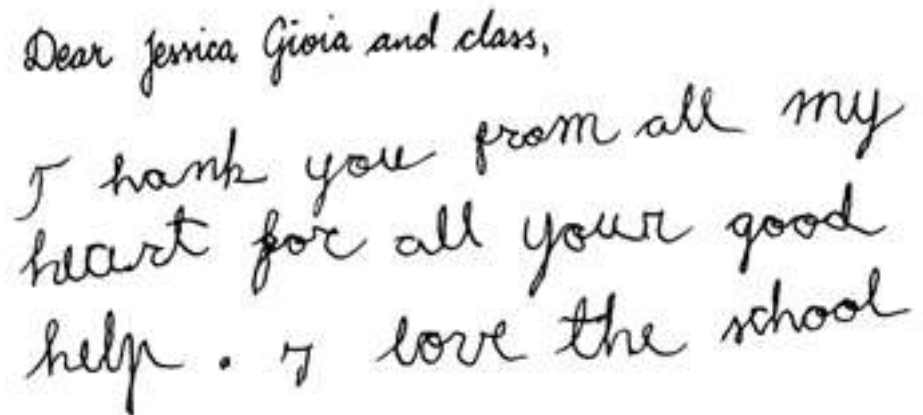 Dear Jessica Gioia and class,
Thank you from all my
heart for all your good
help. I love the school